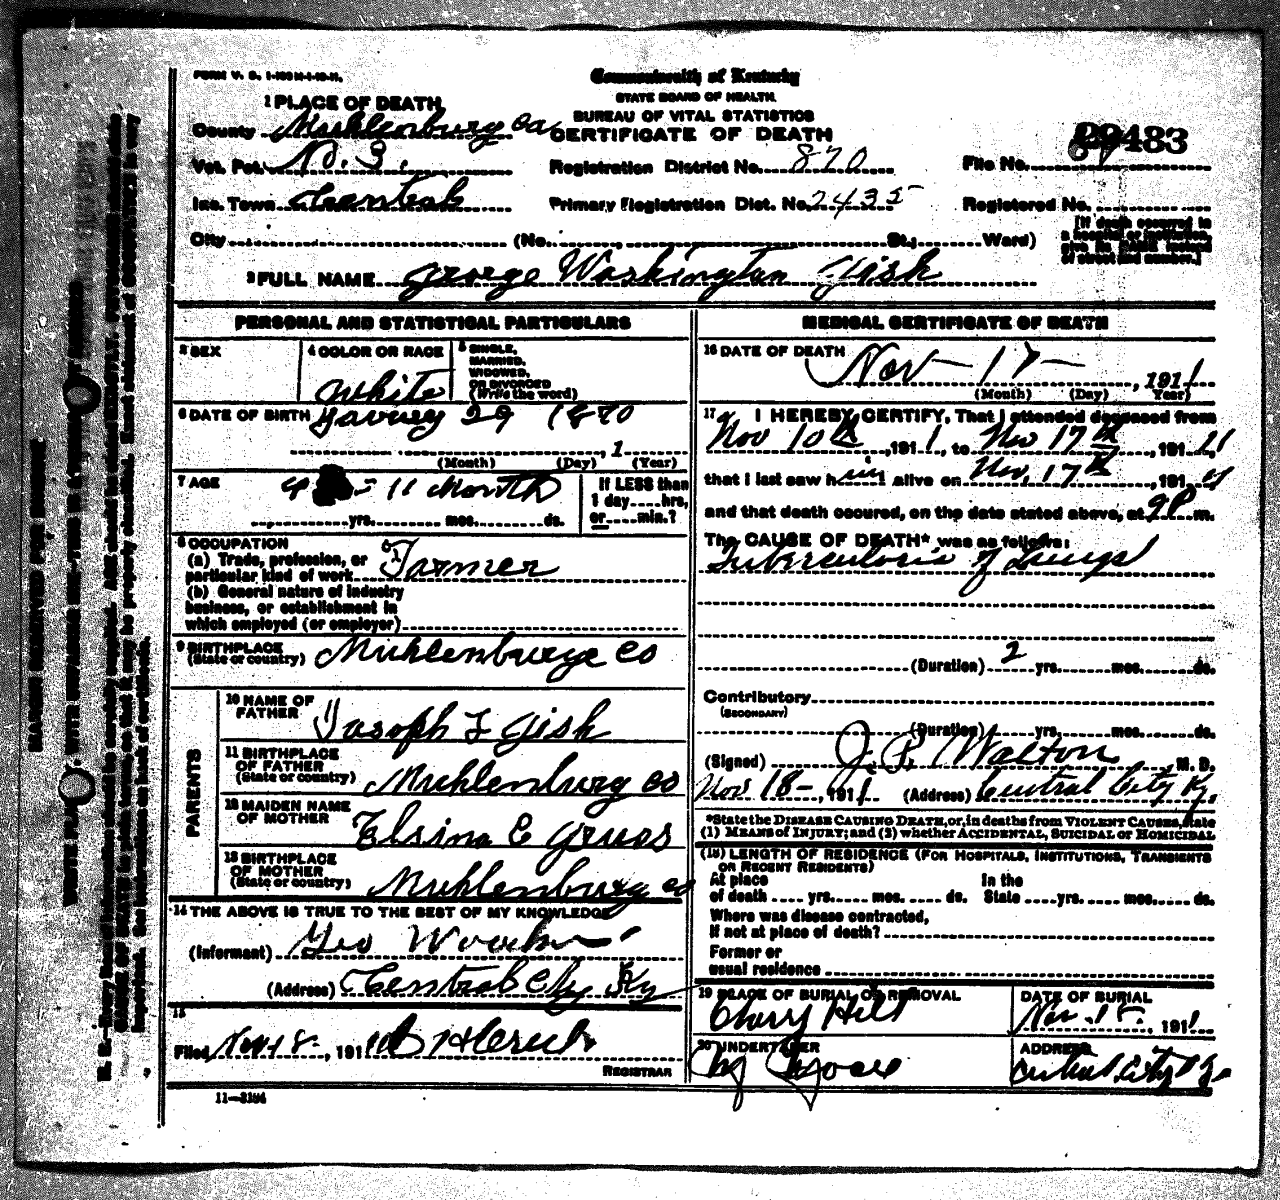 FORM V. S.
Commonwealth of Kentucky
STATE BOARD OF HEALTH.
BUREAU OF VITAL STATISTICS
CERTIFICATE OF DEATH
1 PLACE OF DEATH
County Muhlenburg Co.
Vot. Pct. No. 3.
Inc. Town Central
City (No. , St.; Ward)
Registration District No. 870
Primary Registration Dist. No. 2435
File No. 29483
Registered No.
[If death occurred in a hospital or institution, give its NAME instead of street and number.]
2 FULL NAME George Washington Gish
PERSONAL AND STATISTICAL PARTICULARS
3 SEX
4 COLOR OR RACE White
5 SINGLE, MARRIED, WIDOWED, OR DIVORCED (Write the word)
6 DATE OF BIRTH 29 1870
, 1
(Month) (Day) (Year)
7 AGE 11 Month
yrs. mos. ds.
If LESS than 1 day hrs. or min.?
8 OCCUPATION
(a) Trade, profession, or particular kind of work Farmer
(b) General nature of industry business, or establishment in which employed (or employer)
9 BIRTHPLACE (State or country) Muhlenburge Co
PARENTS
10 NAME OF FATHER Joseph Gish
11 BIRTHPLACE OF FATHER (State or country) Muhlenburg Co
12 MAIDEN NAME OF MOTHER E
13 BIRTHPLACE OF MOTHER (State or country) Muhlenburg Co
14 THE ABOVE IS TRUE TO THE BEST OF MY KNOWLEDGE
(Informant) Geo
(Address) Central City Ky
15
Filed Nov 18, 1911
REGISTRAR
11—3184
MEDICAL CERTIFICATE OF DEATH
16 DATE OF DEATH Nov — 17 — , 1911
(Month) (Day) Year)
17 I HEREBY CERTIFY, That I attended deceased from
Nov 10th, 1911, to Nov 17th, 1911
that I last saw him alive on Nov, 17th, 191
and that death occured, on the date stated above, at 9 P m.
The CAUSE OF DEATH* was as follows:
Tuberculosis of Lungs
(Duration) 2 yrs. mos. ds.
Contributory
(SECONDARY)
(Duration) yrs. mos. ds.
(Signed) J. P. Walton M. D.
Nov 18 — , 1911 (Address) Central City Ky.
*State the DISEASE CAUSING DEATH, or, in deaths from VIOLENT CAUSES, state
(1) MEANS of INJURY; and (2) whether ACCIDENTAL, SUICIDAL or HOMICIDAL
(18) LENGTH OF RESIDENCE (FOR HOSPITALS, INSTITUTIONS, TRANSIENTS OR RECENT RESIDENTS)
At place of death yrs. mos. ds. In the State yrs. mos. ds.
Where was disease contracted,
If not at place of death?
Former or
usual residence
19 PLACE OF BURIAL OR REMOVAL Cherry Hill
DATE OF BURIAL Nov. 18. , 1911
20 UNDERTAKER
ADDRESS Central City Ky.
MARGIN RESERVED FOR BINDING